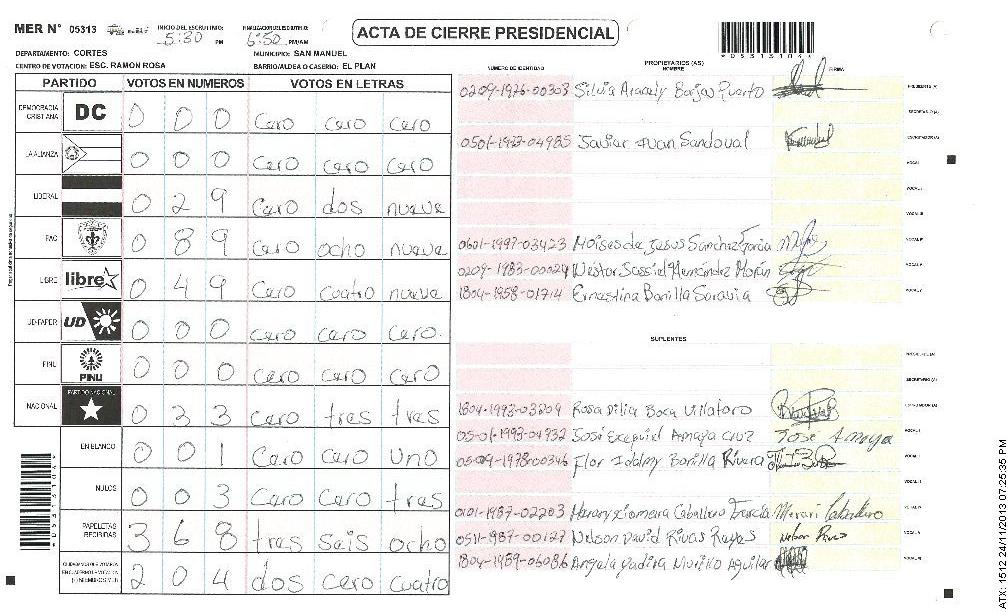 MER N° 05313 INICIO DEL ESCRUTINIO: 5:30 PM FINALIZACION DEL ESCRUTINIO: 6:50 PM/AM
ACTA DE CIERRE PRESIDENCIAL
DEPARTAMENTO: CORTES MUNICIPIO: SAN MANUEL
CENTRO DE VOTACION: ESC. RAMON ROSA BARRIO/ALDEA O CASERIO: EL PLAN
PARTIDO VOTOS EN NUMEROS VOTOS EN LETRAS
DEMOCRACIA CRISTIANA DC 0 0 0 Cero cero cero
LA ALIANZA 0 0 0 Cero cero cero
LIBERAL 0 2 9 Cero dos nueve
PAC 0 8 9 Cero ocho nueve
LIBRE libre 0 4 9 Cero cuatro nueve
UD-FAPER UD 0 0 0 Cero cero cero.
PINU PINU 0 0 0 Cero cero cero
NACIONAL PARTIDO NACIONAL 0 3 3 cero tres tres
EN BLANCO 0 0 1 Cero Cero uno
NULOS 0 0 3 Cero Cero tres
PAPELETAS RECIBIDAS 3 6 8 tres seis ocho
2 0 4 dos cero cuatro
NUMERO DE IDENTIDAD PROPIETARIOS (AS) NOMBRE FIRMA
0209-1976-00303 Silvia Aracely Borjas Puerto PRESIDENTE (A)
SECRETARIO (A)
0501-1983-04985 Javier Ivan Sandoval ESCRUTADOR (A)
VOCAL I
VOCAL II
VOCAL III
0601-1997-03423 Moises de Jesus Sanchez Garcia VOCAL IV
0209-1983-00024 Nestor Sassiel Hernandez Morán VOCAL V
1804-1958-01714 Ernestina Bonilla Saravia VOCAL VI
SUPLENTES
PRESIDENTE (A)
SECRETARIO (A)
1804-1993-03209 Rosa Dilia Boca Villatoro ESCRUTADOR (A)
0501-1993-04932 José Exequiel Amaya Cruz José Amaya VOCAL I
0509-1978-00346 Flor Idalmy Bonilla Rivera VOCAL II
VOCAL III
0101-1987-02203 Merary Xiomara Caballero Merari Caballero VOCAL IV
0511-1987-00127 Nelson David Rivas Reyes Nelson VOCAL V
1804-1989-06086 Angela Yadira Murillo Aguilar VOCAL VI
ATX: 1512 24/11/2013 07:25:35 PM